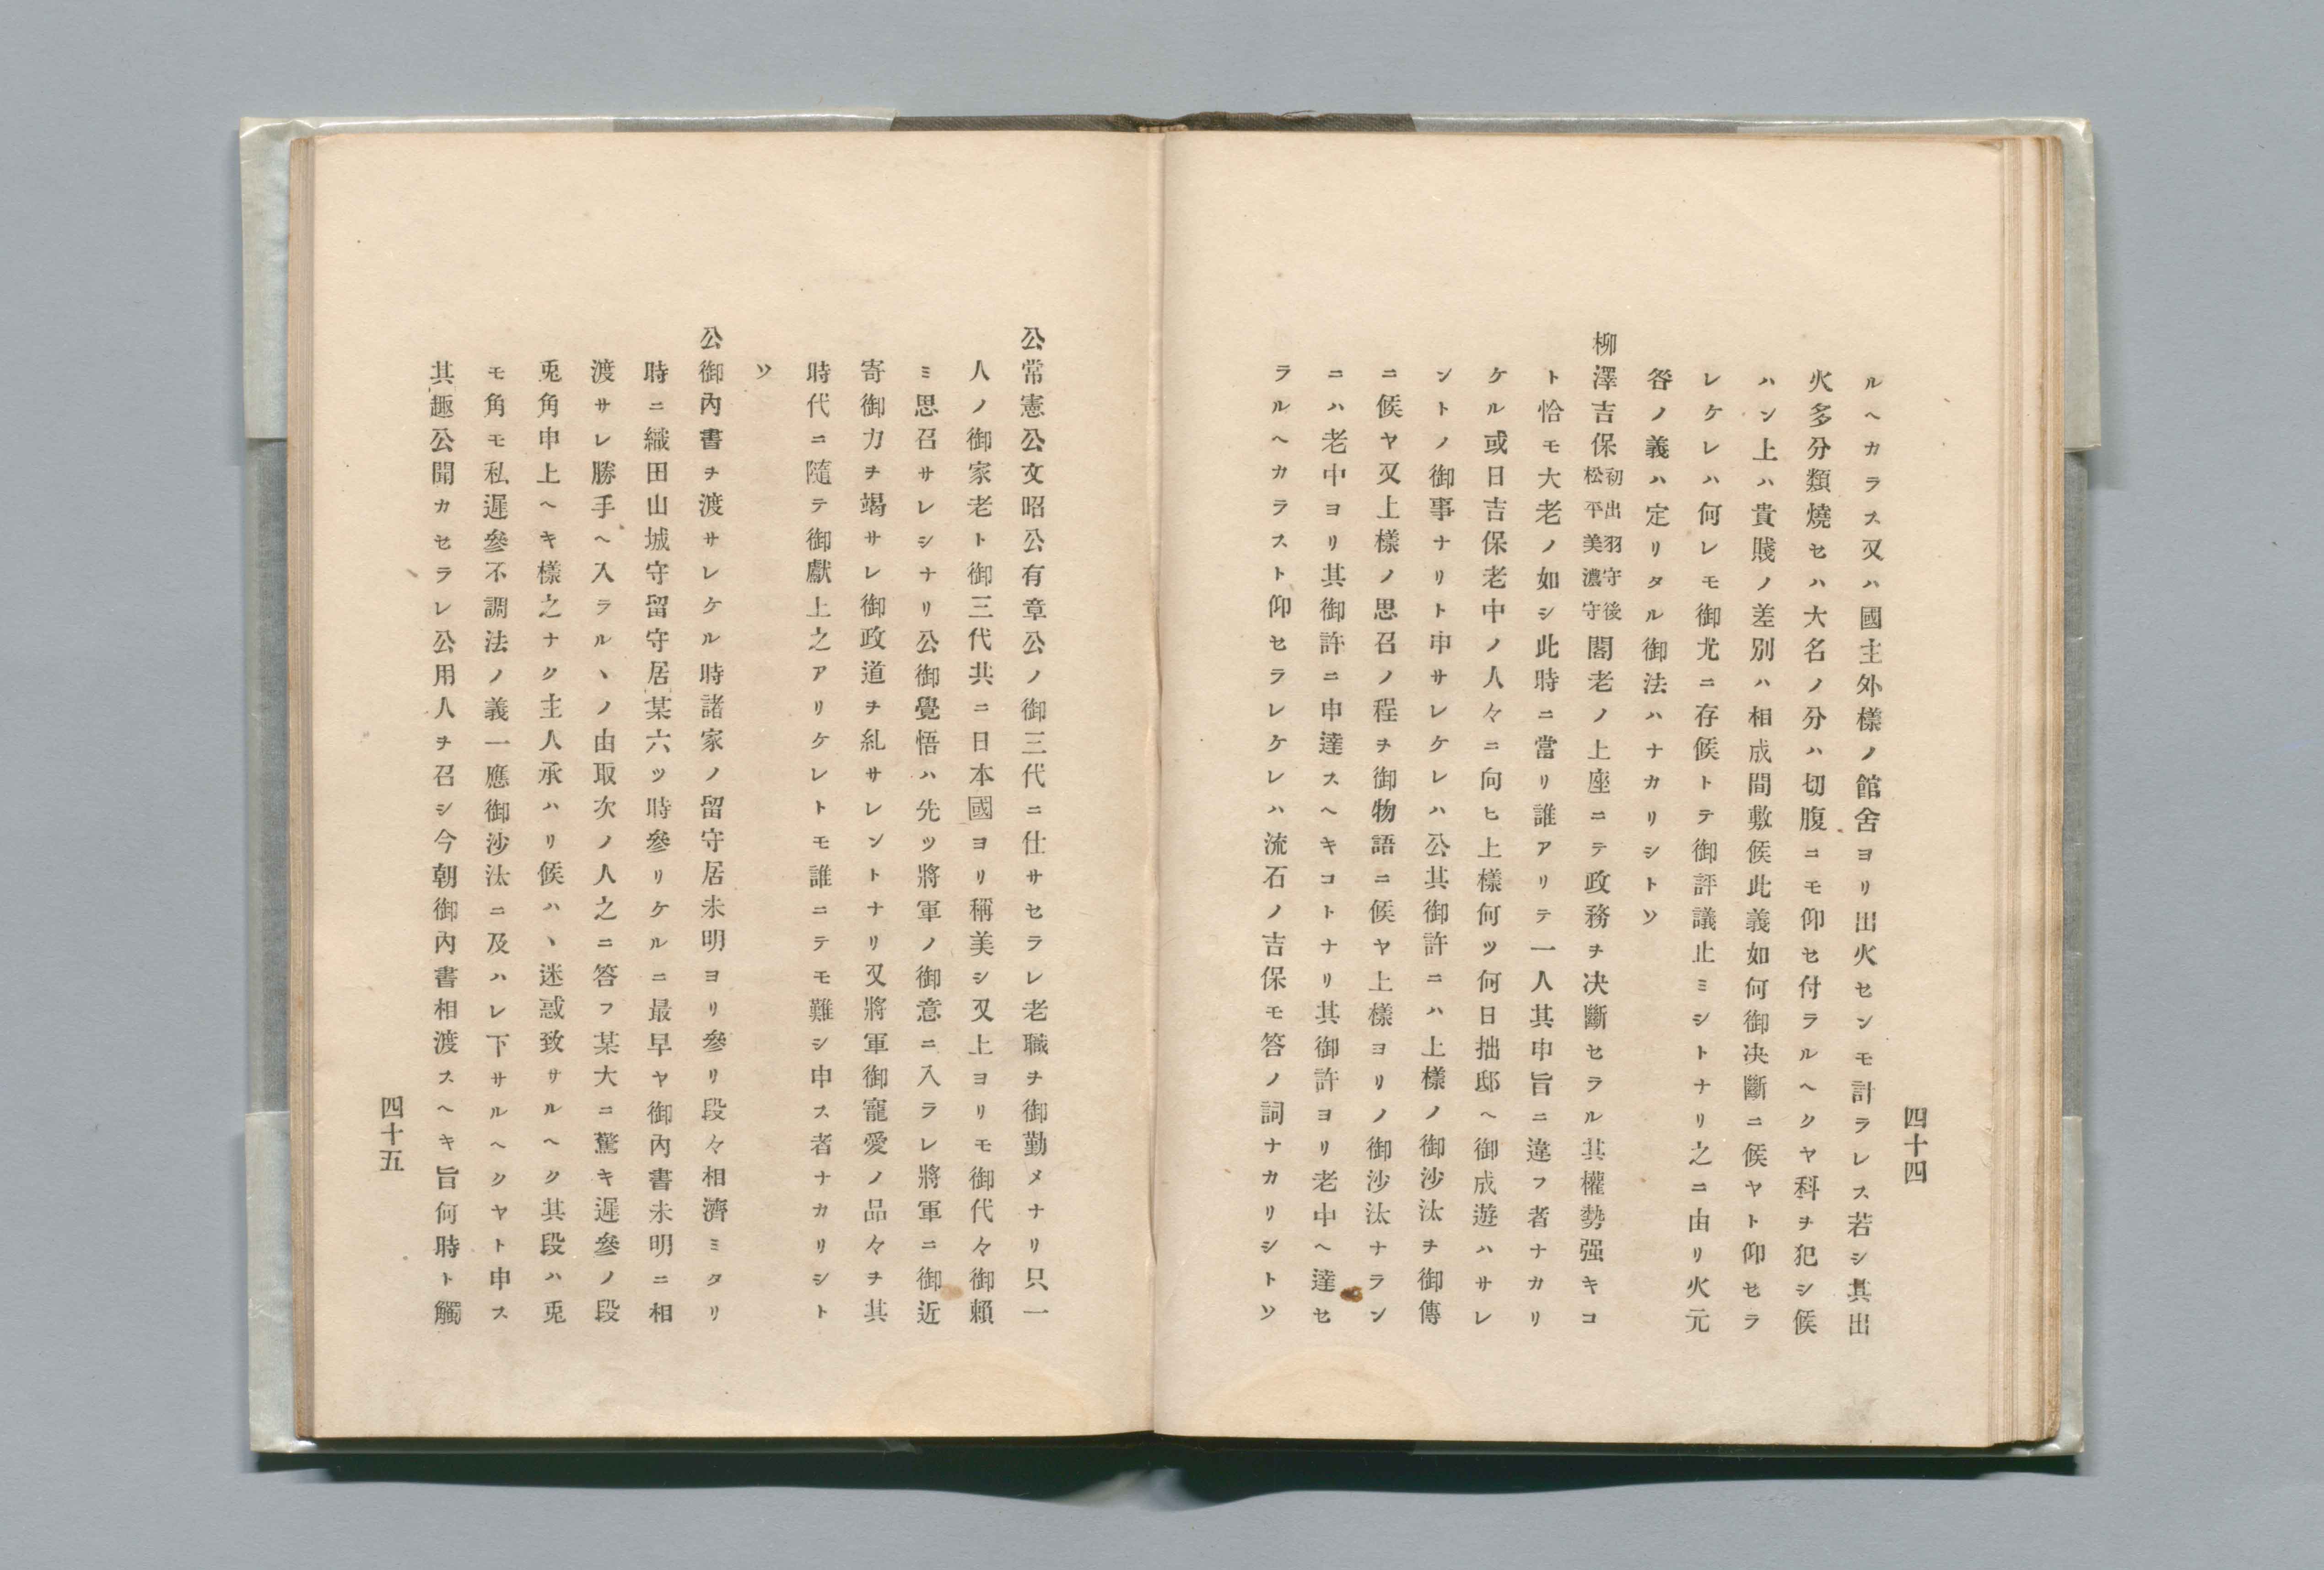 四十四
ルヘカラス又ハ國主外樣ノ館舍ヨリ出火センモ計ラレス若シ其出
火多分類燒セハ大名ノ分ハ切腹ニモ仰セ付ラルヘクヤ科ヲ犯シ候
ハン上ハ貴賤ノ差別ハ相成間敷候此義如何御决斷ニ候ヤト仰セラ
レケレハ何レモ御尤ニ存候トテ御評議止ミシトナリ之ニ由リ火元
咎ノ義ハ定リタル御法ハナカリシトソ
柳澤吉保初出羽守後松平美濃守閣老ノ上座ニテ政務ヲ决斷セラル其權勢强キコ
ト恰モ大老ノ如シ此時ニ當リ誰アリテ一人其申旨ニ違フ者ナカリ
ケル或日吉保老中ノ人々ニ向ヒ上樣何ッ何日拙邸ヘ御成遊ハサレ
ントノ御事ナリト申サレケレハ公其御許ニハ上樣ノ御沙汰ヲ御傳
ニ候ヤ又上樣ノ思召ノ程ヲ御物語ニ候ヤ上樣ヨリノ御沙汰ナラン
ニハ老中ヨリ其御許ニ申達スヘキコトナリ其御許ヨリ老中ヘ達セ
ラルヘカラスト仰セラレケレハ流石ノ吉保モ答ノ詞ナカリシトソ
公常憲公文昭公有章公ノ御三代ニ仕サセラレ老職ヲ御勤メナリ只一
人ノ御家老ト御三代共ニ日本國ヨリ稱美シ又上ヨリモ御代々御賴
ミ思召サレシナリ公御覺悟ハ先ッ將軍ノ御意ニ入ラレ將軍ニ御近
寄御力ヲ竭サレ御政道ヲ糺サレントナリ又將軍御寵愛ノ品々ヲ其
時代ニ隨テ御獻上之アリケレトモ誰ニテモ難シ申ス者ナカリシト
ソ
公御內書ヲ渡サレケル時諸家ノ留守居未明ヨリ參リ段々相濟ミタリ
時ニ織田山城守留守居某六ッ時參リケルニ最早ヤ御內書未明ニ相
渡サレ勝手ヘ入ラルヽノ由取次ノ人之ニ答フ某大ニ驚キ遲參ノ段
兎角申上ヘキ樣之ナク主人承ハリ候ハヽ迷惑致サルヘク其段ハ兎
モ角モ私遲參不調法ノ義一應御沙汰ニ及ハレ下サルヘクヤト申ス
其趣公聞カセラレ公用人ヲ召シ今朝御內書相渡スヘキ旨何時ト觸
四十五